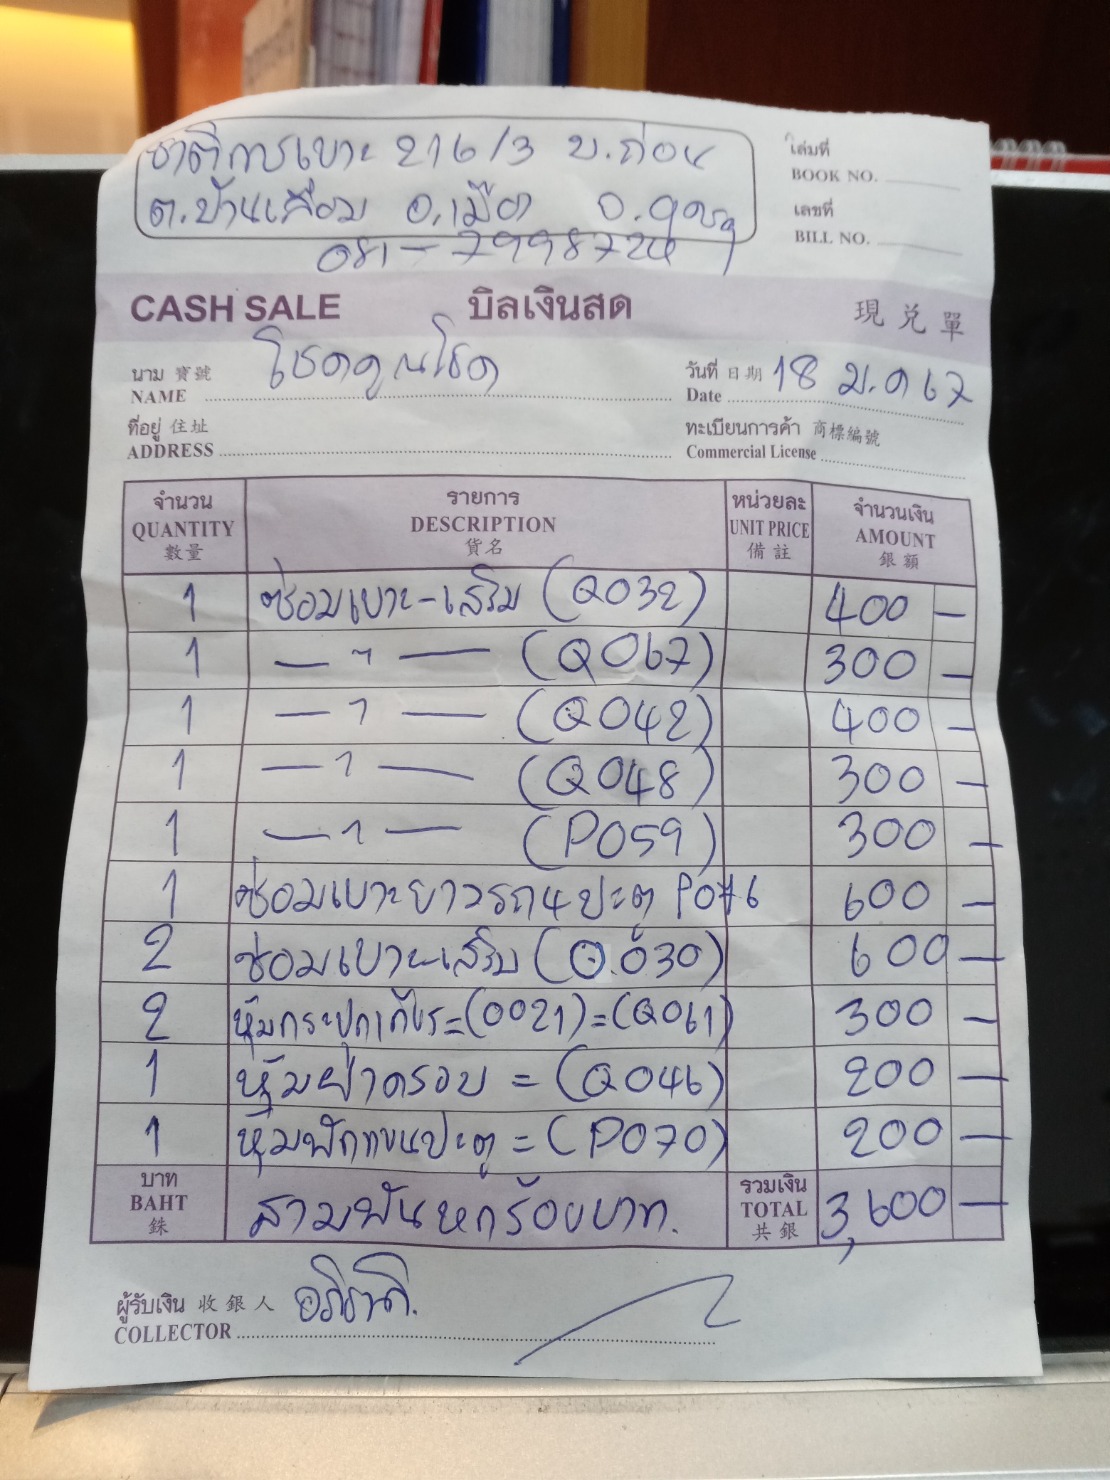 ชาติการเบาะ 216/3 บ.ถ่อน
ต.บ้านเลื่อม อ.เมือง จ.อุดร
081-7998724
เล่มที่
BOOK NO.
เลขที่
BILL NO.
CASH SALE บิลเงินสด 現兑單
นาม 寶號 โชคคูณโชค วันที่ 日期 18 ม.ค 67
NAME Date
ที่อยู่ 住址 ทะเบียนการค้า 商標編號
ADDRESS Commercial License
จำนวน รายการ หน่วยละ จำนวนเงิน
QUANTITY DESCRIPTION UNIT PRICE AMOUNT
數量 貨名 備註 銀額
1 ซ่อมเบาะ-เสริม (Q032) 400 -
1 — " — (Q067) 300 -
1 — " — (Q042) 400 -
1 — " — (Q048) 300 -
1 — " — (P059) 300 -
1 ซ่อมเบาะยาวรถ4ปะตู P076 600 -
2 ซ่อมเบาะ-เสริม (Q.030) 600 -
2 หุ้มกระปุกเกียร=(0021)=(Q061) 300 -
1 หุ้มฝาครอบ = (Q046) 200 -
1 หุ้มพักแขนปะตู = (P070) 200 -
บาท รวมเงิน
BAHT สามพันหกร้อยบาท. TOTAL 3,600 -
銖 共銀
ผู้รับเงิน 收銀人
COLLECTOR